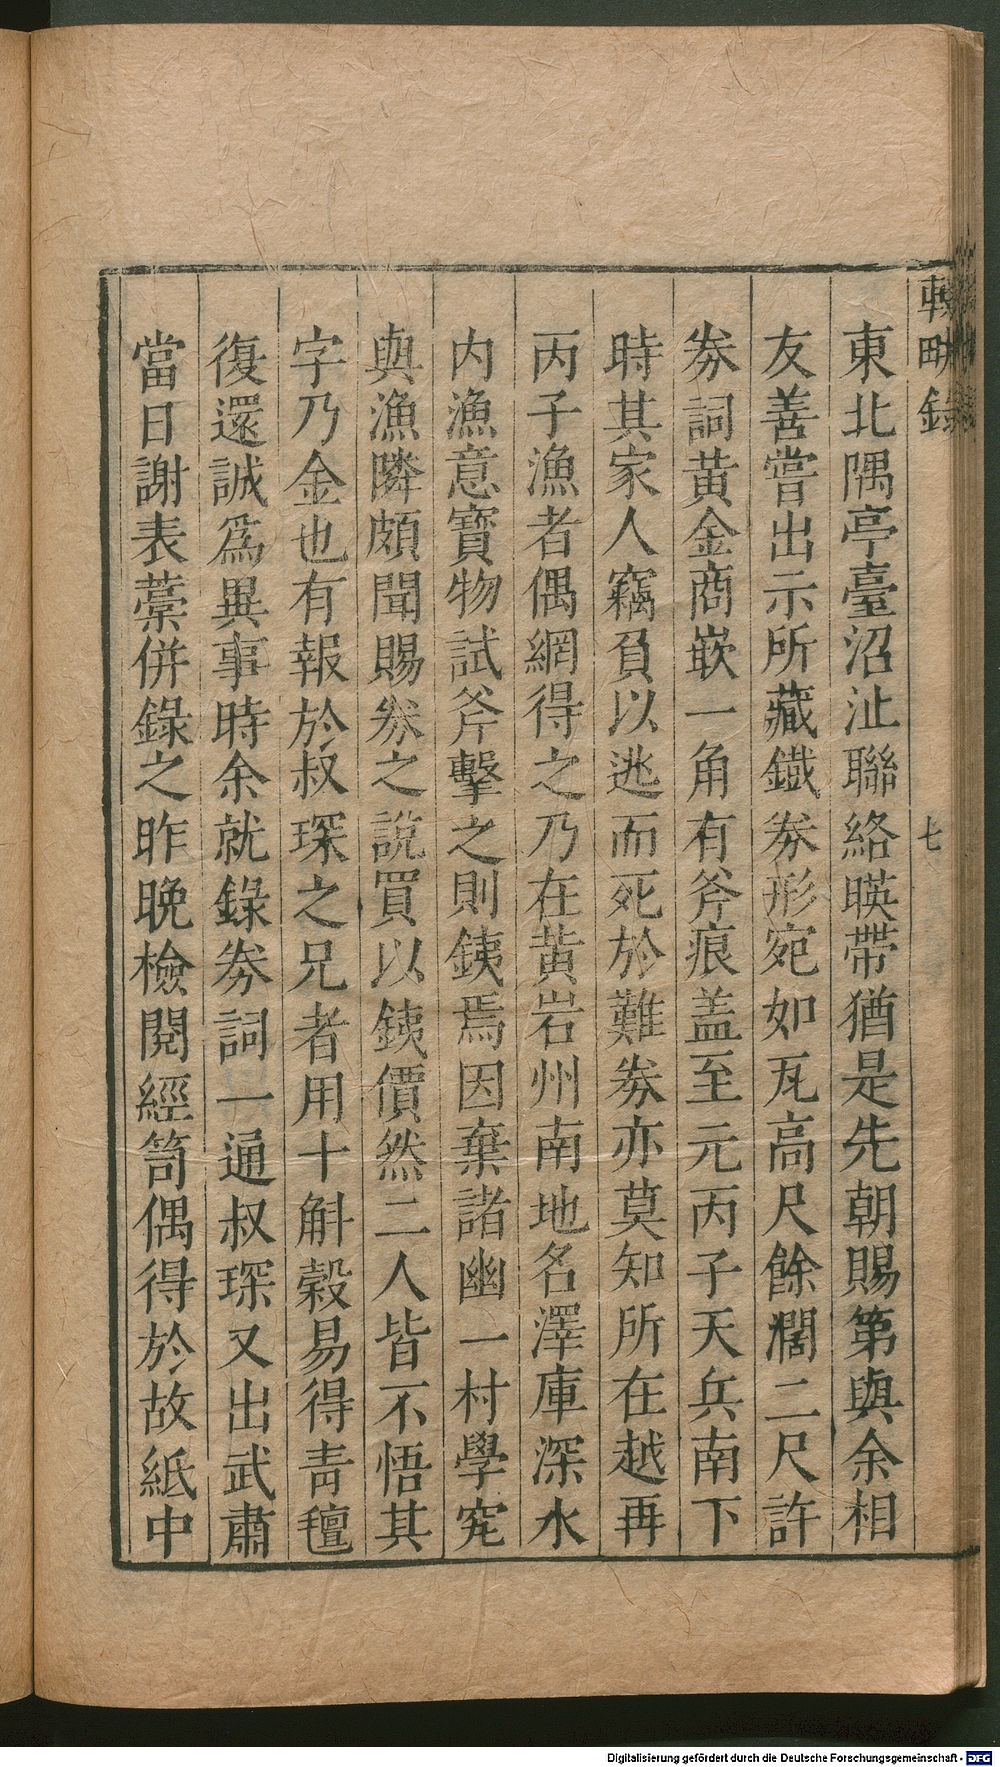 輟畊錄
七
東北隅亭臺沼沚聯絡暎帶猶是先朝賜第與余相
友善嘗出示所藏鐵券形宛如瓦高尺餘濶二尺許
券詞黃金商嵌一角有斧痕盖至元丙子天兵南下
時其家人竊負以逃而死於難券亦莫知所在越再
丙子漁者偶網得之乃在黃岩州南地名澤庫深水
内漁意寶物試斧擊之則銕焉因棄諸幽一村學究
與漁隣頗聞賜券之說買以銕價然二人皆不悟其
字乃金也有報於叔琛之兄者用十斛穀易得青氊
復還誠爲異事時余就錄券詞一通叔琛又出武肅
當日謝表藁併錄之昨晚檢閱經笥偶得於故紙中
Digitalisierung gefördert durch die Deutsche Forschungsgemeinschaft - DFG